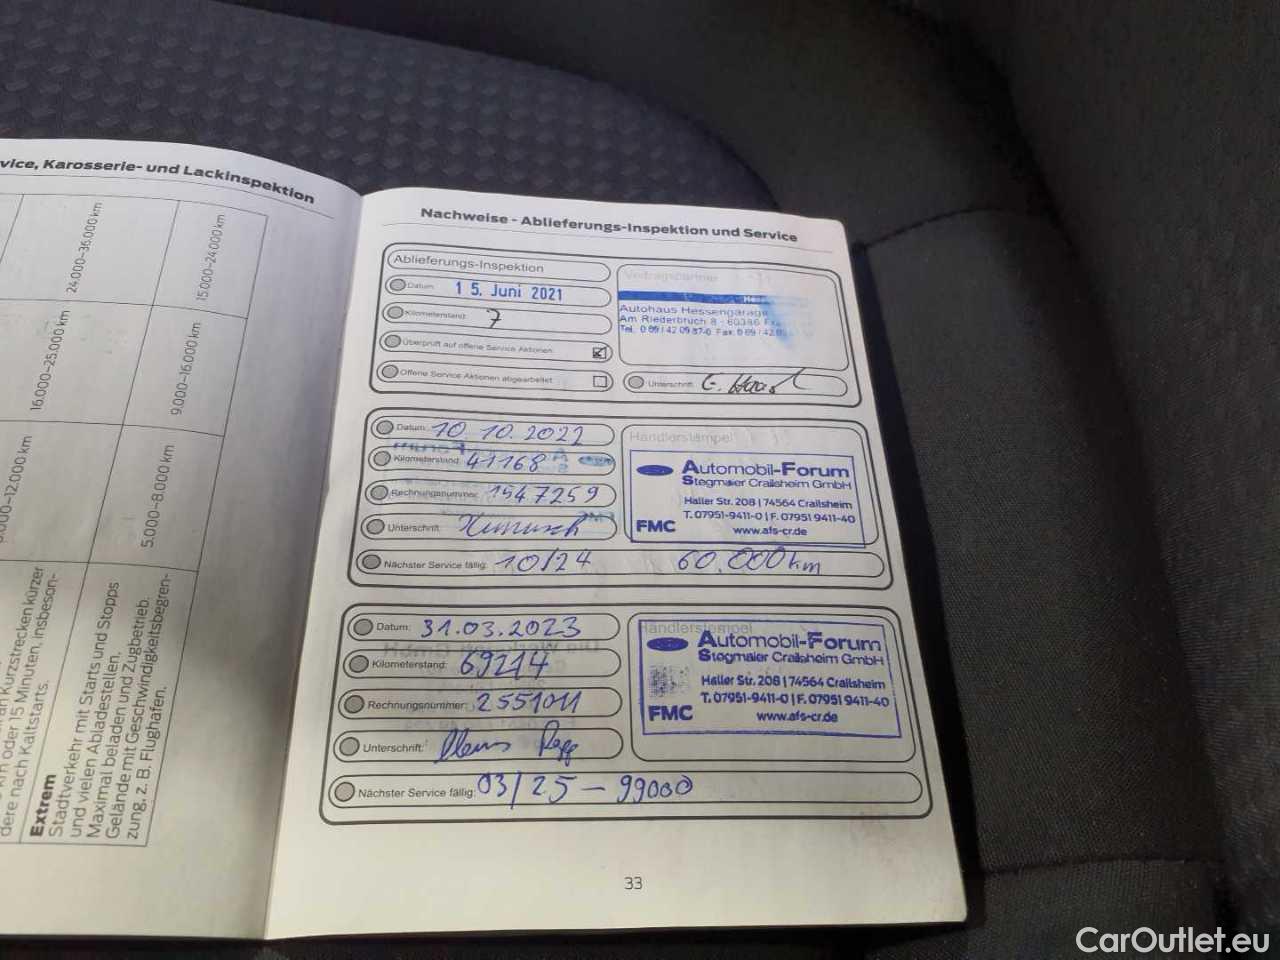 vice, Karosserie- und Lackinspektion
24.000–36.000 km
15.000–24.000 km
16.000–25.000 km
9.000–16.000 km
5.000–8.000 km
dere nach Kaltstarts.
Extrem
Stadtverkehr mit Starts und Stopps
und vielen Abladestellen.
Maximal beladen und Zugbetrieb.
Gelände mit Geschwindigkeitsbegren-
zung, z. B. Flughafen.
Nachweise - Ablieferungs-Inspektion und Service
Ablieferungs-Inspektion
Datum: 15. Juni 2021
Kilometerstand: 7
Überprüft auf offene Service Aktionen
Offene Service Aktionen abgearbeitet
Vertragspartner
Autohaus Hessengarage
Am Riederbruch 8 - 60386
Unterschrift:
Datum: 10.10.2022
Kilometerstand: 41168
Rechnungsnummer: 1547259
Unterschrift:
Nächster Service fällig: 10/24 60.000km
Händlerstempel
Automobil-Forum
Stegmaier Crailsheim GmbH
Haller Str. 208 | 74564 Crailsheim
T. 07951-9411-0 | F. 07951 9411-40
FMC www.afs-cr.de
Datum: 31.03.2023
Kilometerstand: 69214
Rechnungsnummer: 2551011
Unterschrift:
Nächster Service fällig: 03/25 - 99000
Händlerstempel
Automobil-Forum
Stegmaier Crailsheim GmbH
Haller Str. 208 | 74564 Crailsheim
T. 07951-9411-0 | F. 07951 9411-40
FMC www.afs-cr.de
33
CarOutlet.eu